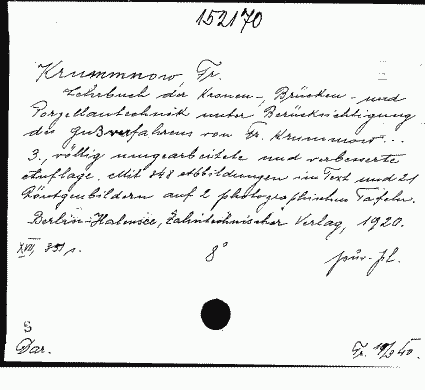 152170
Krummnow, Fr.
Lehrbuch der Kronen-, Brücken- und
Porzellantechnik unter Berücksichtigung
des Gußverfahrens von Fr. Krummow...
3., völlig umgearbeitete und verbesserte
Auflage. Mit 848 Abbildungen im Text und 21
Röntgenbildern auf 2 photographischen Tafeln.
Berlin-Halensee, Zahntechnischer Verlag, 1920.
XVI, 351 s. 8°
S
Dar.